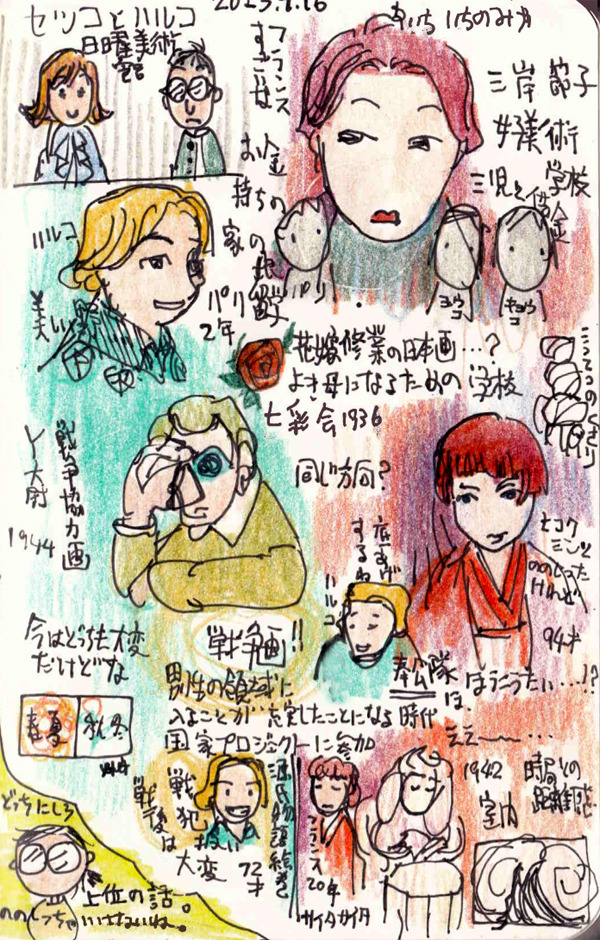 2023.7.16
セツコとハルコ
日曜美術館
いちのみや
三岸節子
女子美術学校
三児と借金
フランスすごいな
お金持ちの家の
パリ2年
ハルコ
ヨウコ
キョウコ
花嫁修業の日本画…?
よき母になるための学校
七彩会1936
同じ方向?
戦争協力画
1944
底あげするね
ハルコ
ヒコク
ミンと
ののしった
けれど
94才
今はどっちも大変
だけどな
戦争画!!
男性の領域に
入ることが
したことになる時代
国家プロジェクトに参加
奉公隊
は、
ほうこうたい…!?
ええ〜…
春夏
秋冬
戦後は
戦犯扱い
大変
源氏物語絵巻
72才
フランス
20年
サイタサイタ
1942
室内
時局との
距離感
どっちにしろ
上位の話。
ののしっちゃ
いけないね。